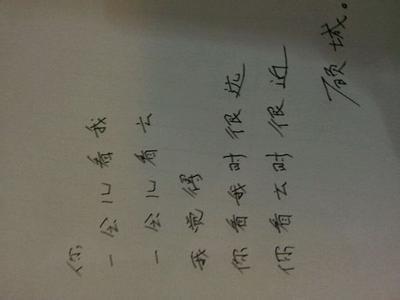 你,
一会儿看我
一会儿看云
我觉得
你看我时很远
你看云时很近
顾城。